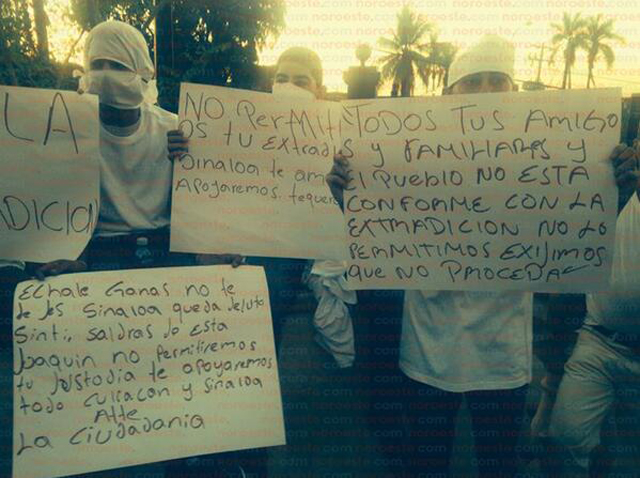 LA
ADICIA
NO PerMiti
OS tu Extradi
Sinaloa te am
Apoyaremos. tequere
TODOS TUS AMIGO
S y FAMILIARES y
El Pueblo NO ESTA
CONFORME CON LA
EXTRADICION NO LO
PERMITIMOS EXIJIMOS
que NO PROCEDA
Echale Ganas no te
de Jes Sinaloa queda deluto
Sinti, saldras do Esta
Joaquin no permitiremos
tu Justodia te apoyaremos
todo Culiacan y Sinaloa
Atte
La Ciudadania
noroeste.com